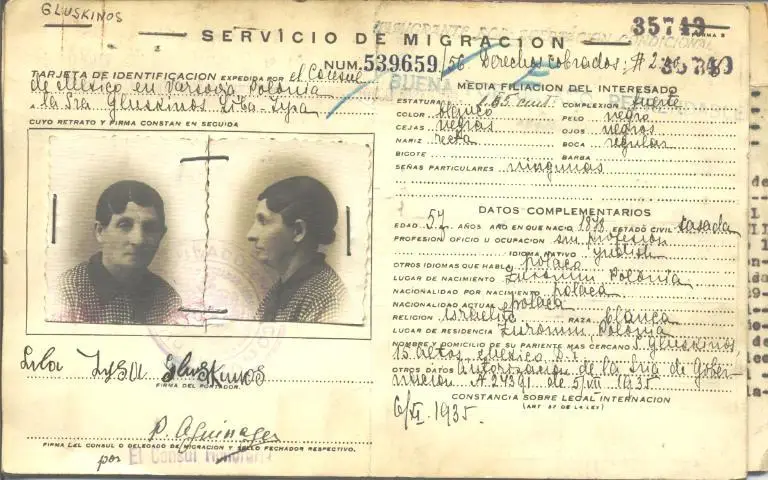 GLUSKINOS
35749
SERVICIO DE MIGRACION
NUM. 539659/56 Derechos cobrados: #
35749
TARJETA DE IDENTIFICACION EXPEDIDA POR el Consul
de Mexico en Varsovia Polonia
a la Sra. Gluskinos Liba-Zysa
CUYO RETRATO Y FIRMA CONSTAN EN SEGUIDA
BUENA
MEDIA FILIACION DEL INTERESADO
ESTATURA 1.55 cmts. COMPLEXION fuerte
COLOR blanco PELO negro
CEJAS negras OJOS negros
NARIZ recta BOCA regular
BIGOTE BARBA
SEÑAS PARTICULARES ningunas
DATOS COMPLEMENTARIOS
EDAD 57 AÑOS AÑO EN QUE NACIO 1878 ESTADO CIVIL casada
PROFESION OFICIO U OCUPACION sin profesion
IDIOMA NATIVO yidish
OTROS IDIOMAS QUE HABLA polaco
LUGAR DE NACIMIENTO Zuromin Polonia
NACIONALIDAD POR NACIMIENTO polaca
NACIONALIDAD ACTUAL polaca
RELIGION Israelita RAZA blanca
LUGAR DE RESIDENCIA Zuromin Polonia
NOMBRE Y DOMICILIO DE SU PARIENTE MAS CERCANO S. Gluskinos,
15 altos Mexico D.F.
OTROS DATOS Autorizacion de la Sria de Gober-
nacion # 24391 de 5/VII 1935
CONSTANCIA SOBRE LEGAL INTERNACION
(ART 57 DE LA LEY)
1935.
Liba Zysa Gluskinos
FIRMA DEL PORTADOR.
P. Aguinaga
FIRMA DEL CONSUL O DELEGADO DE MIGRACION Y SELLO FECHADOR RESPECTIVO.
por El Consul Honorario